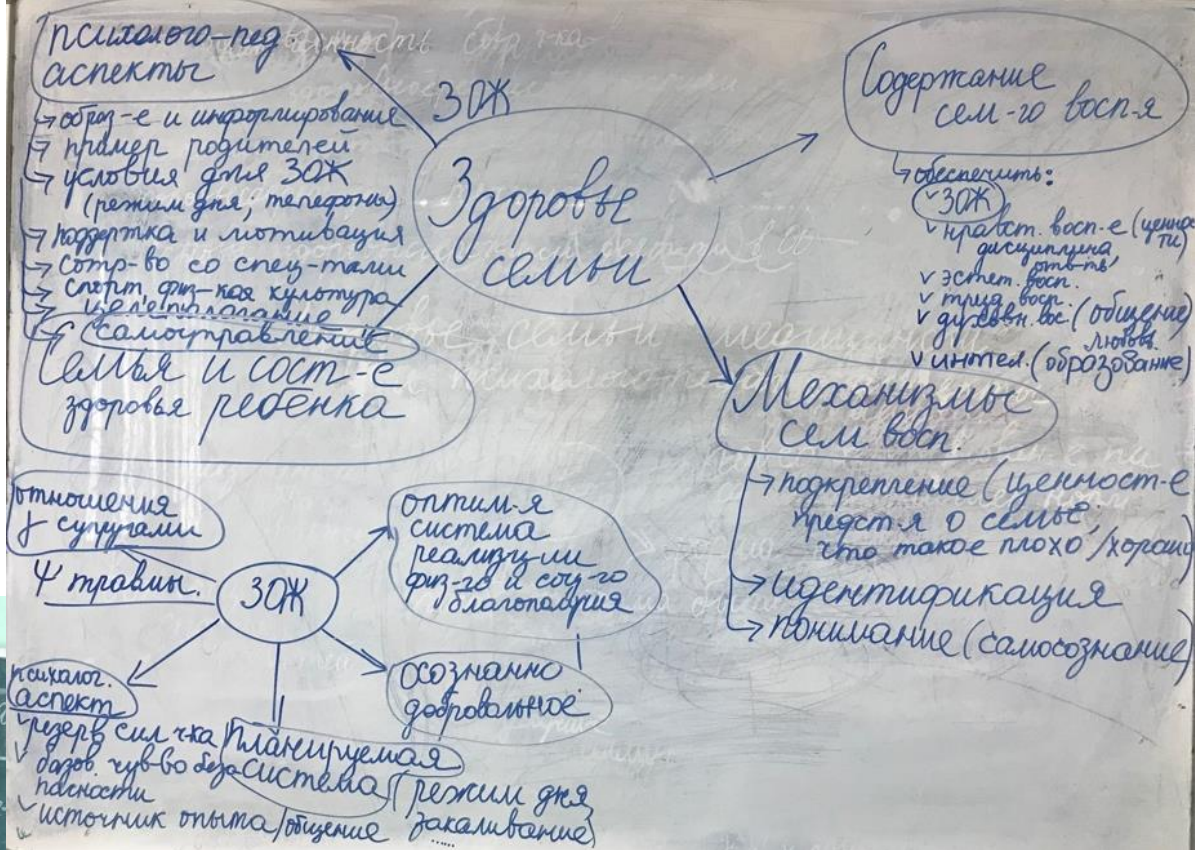 психолого-пед
аспекты
→ образ-е и информирование
→ пример родителей
→ условия для ЗОЖ
(режим дня, телефоны)
→ поддержка и мотивация
→ сотр-во со спец-тами
→ спорт, физ-кая культура
→ целеполагание
→ самоуправление
Семья и сост-е
здоровья ребёнка
ЗОЖ
Здоровье
семьи
Содержание
сем-го восп-я
→ обеспечить:
✓ ЗОЖ
✓ нравст. восп-е (ценнос
ти)
дисциплина,
отв-ть
✓ эстет. восп.
✓ труд. восп.
✓ духовн. вос. (общение)
✓ интел. (образование)
Механизмы
сем восп.
→ подкрепление (ценност-е
предст-я о семье,
что такое плохо/хорошо)
→ идентификация
→ понимание (самосознание)
отношения
супругами
Ψ травмы.
ЗОЖ
оптим-я
система
физ-го и соц-го
благополучия
осознанно
добровольное
психолог.
аспект
✓ резерв сил ч-ка
✓ базов. чув-во безо
пасности
✓ источник опыта/общение
Планируемая
система (режим дня,
закаливание)
.....